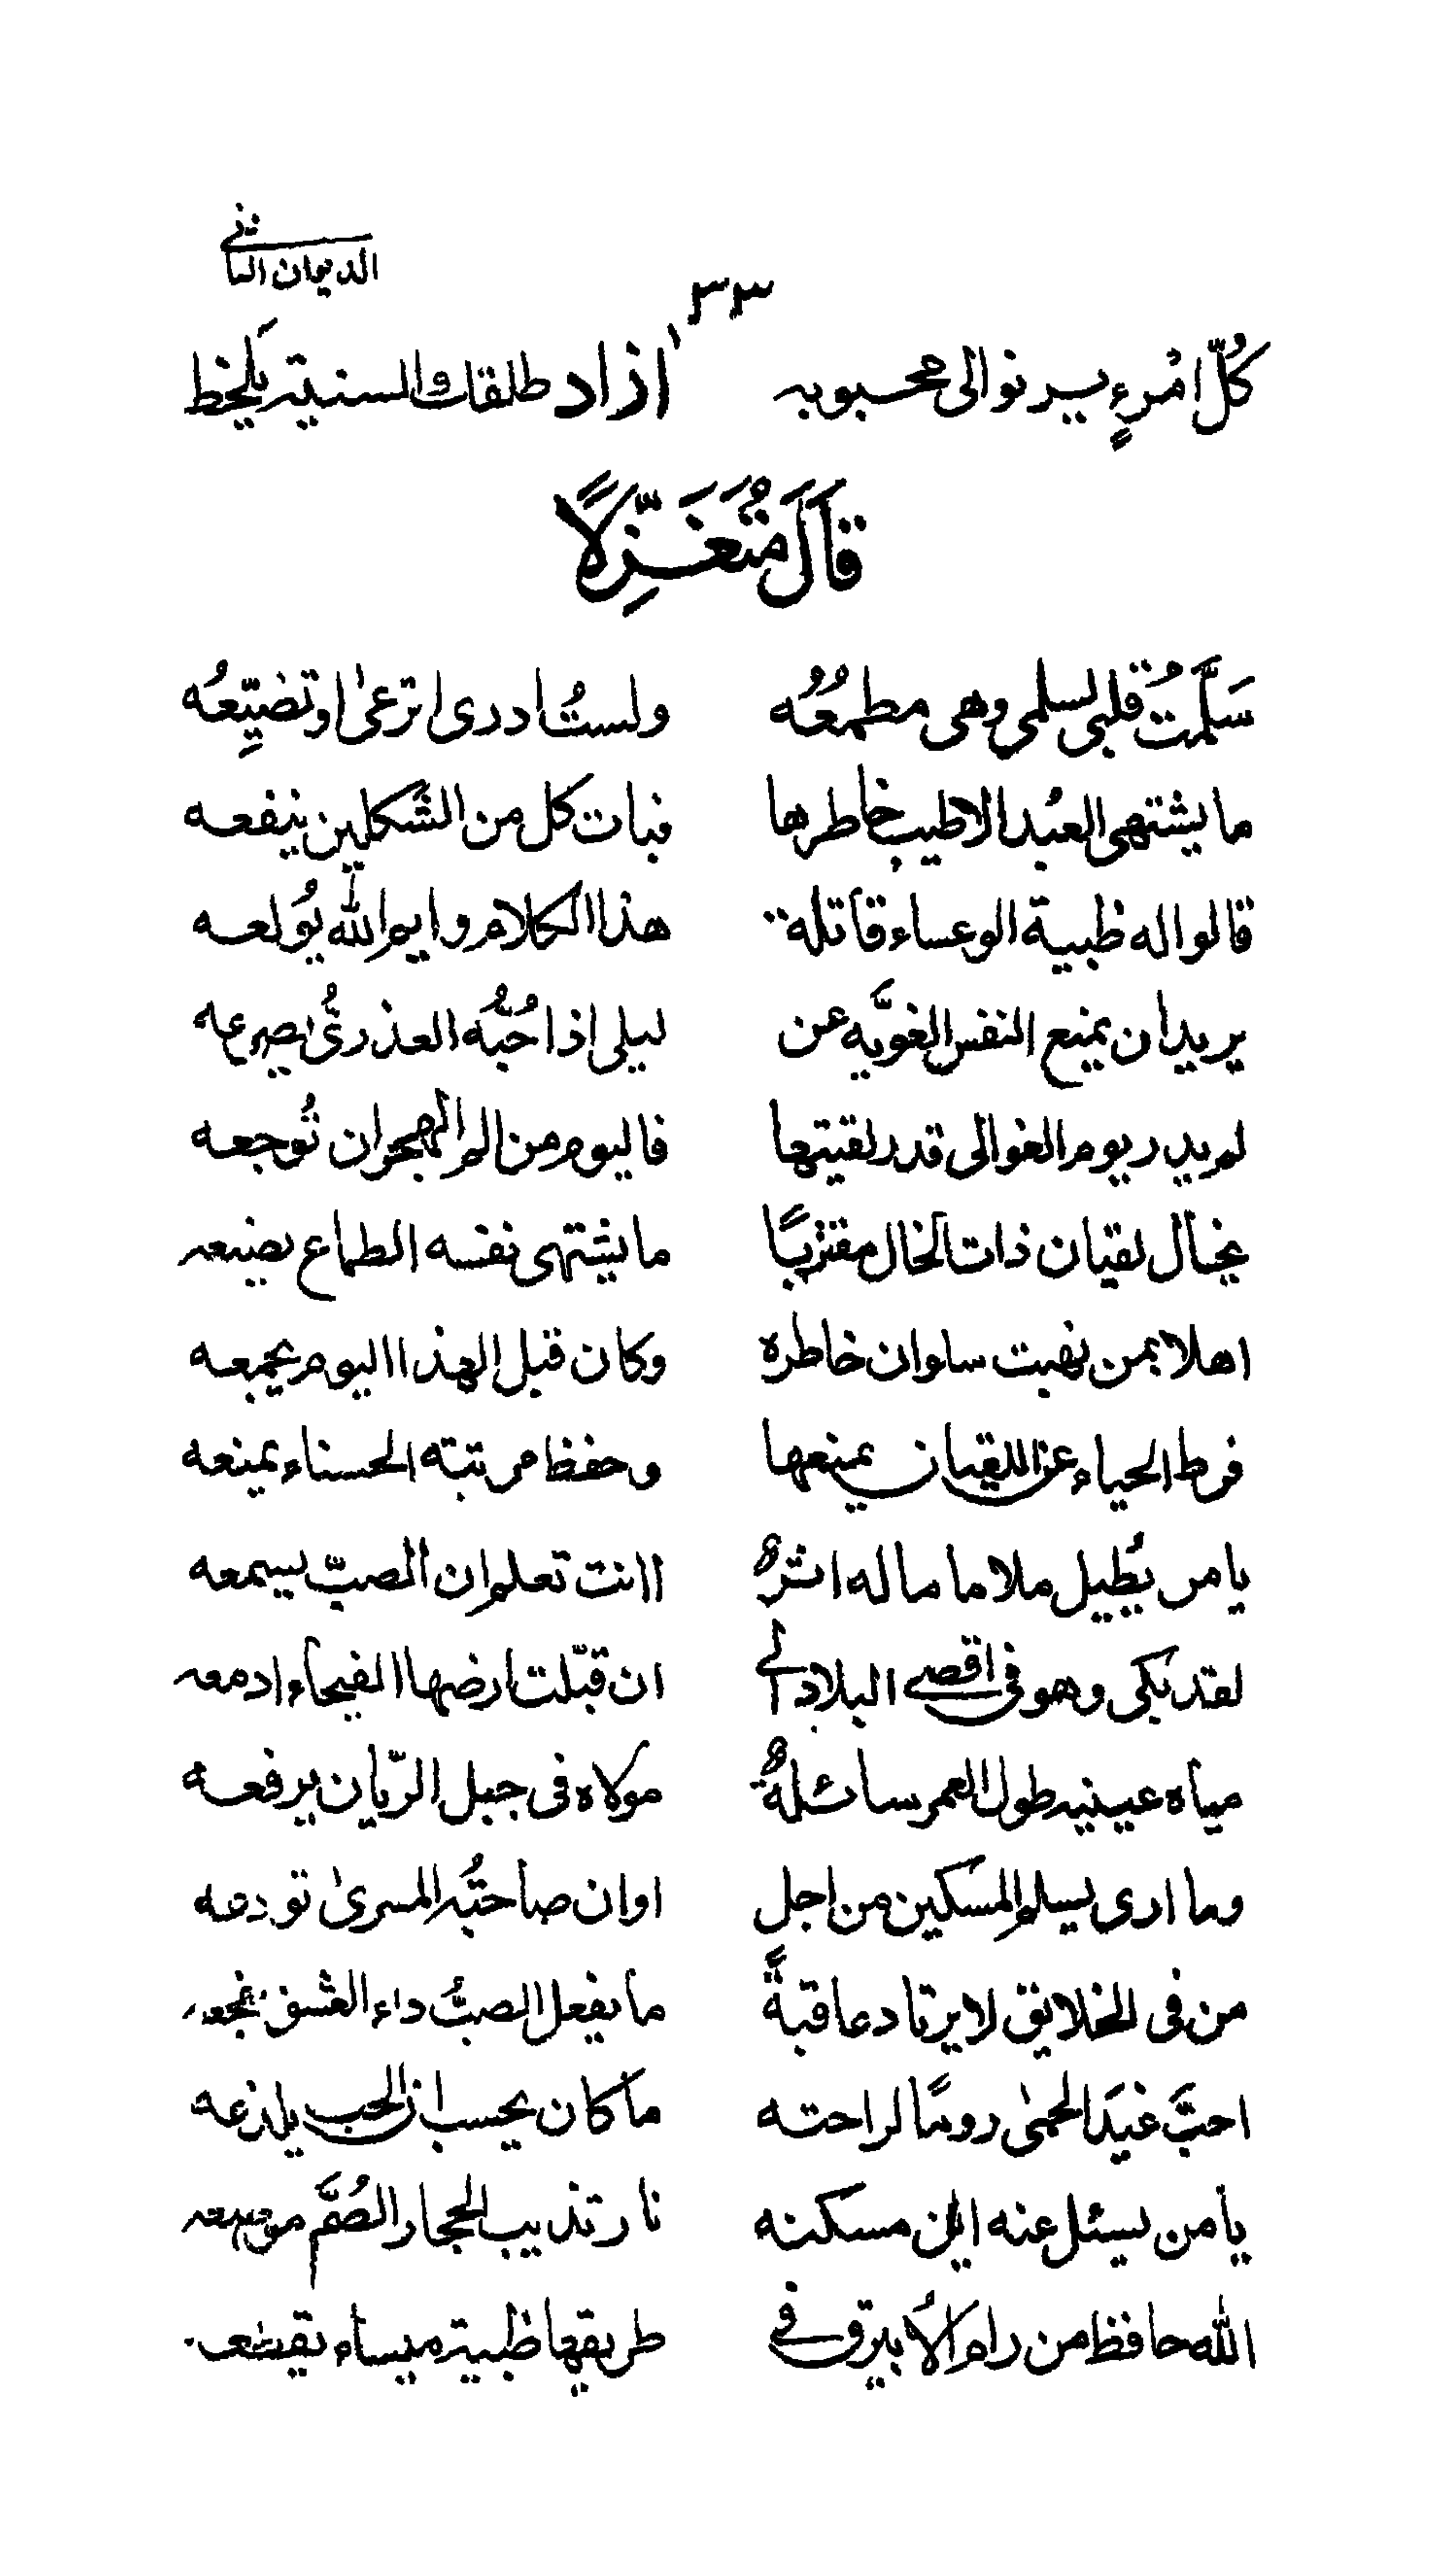 الديوان الثانى
٣٣
كُلّ امْرءٍ يرنو الى محبوبه ازاد طلقات والسنية يَلحظ
قَالَ مُتَغَزِّلًا
سَلَّمْتُ قلبى لسلمى وهى مطمعُه ولستُ ادرى اترعىٰ او تضيِّعُه
ما يشتهى العبُد الا طيب خاطرها فبات كل من الشَكلين ينفعه
قالوا له ظبية الوعساء قاتلة هذا الكلام وايم الله يُولعه
يريد ان يمنع النفس الغويَّه عن ليلى اذا حُبُّه العذرىُّ يصرعه
لم يدر يوم الغوالى قدر لقيتها فاليوم من الم الهجران تُوجعه
يخال لقيان ذات الخال مقتربًا ما يشتهى نفسه الطماع يضيعه
اهلا بمن نهبت سلوان خاطره وكان قبل لهذا اليوم يجمعه
فرط الحياء عن اللقيان يمنعها وحفظ مرتبته الحسناء يمنعه
يا من يُطيل ملاما ماله اثرٌ اانت تعلم ان الصبّ يسمعه
لقد بَكى وهو فى اقصى البلاد الى ان قبّلت ارضها الفيحاء ادمعه
مياه عينيه طول العمر سائلةٌ مولاه فى جبل الريّان يرفعه
وما ارى يسلم المسكين من اجل اوان صاحبُته المسرىٰ تودعه
من فى الخلايق لا يرتاد عاقبةً ما يفعل الصبُّ داء العشق
احبَّ غيَد الحمىٰ رومًا لراحته ما كان يحسب ان الحب يلذعه
يا من يسئل عنه اين مسكنه نار تذيب الحجار الصُمَّ
الله حافظ من رام الاُبيرق فى طريقها ظبية ميساء